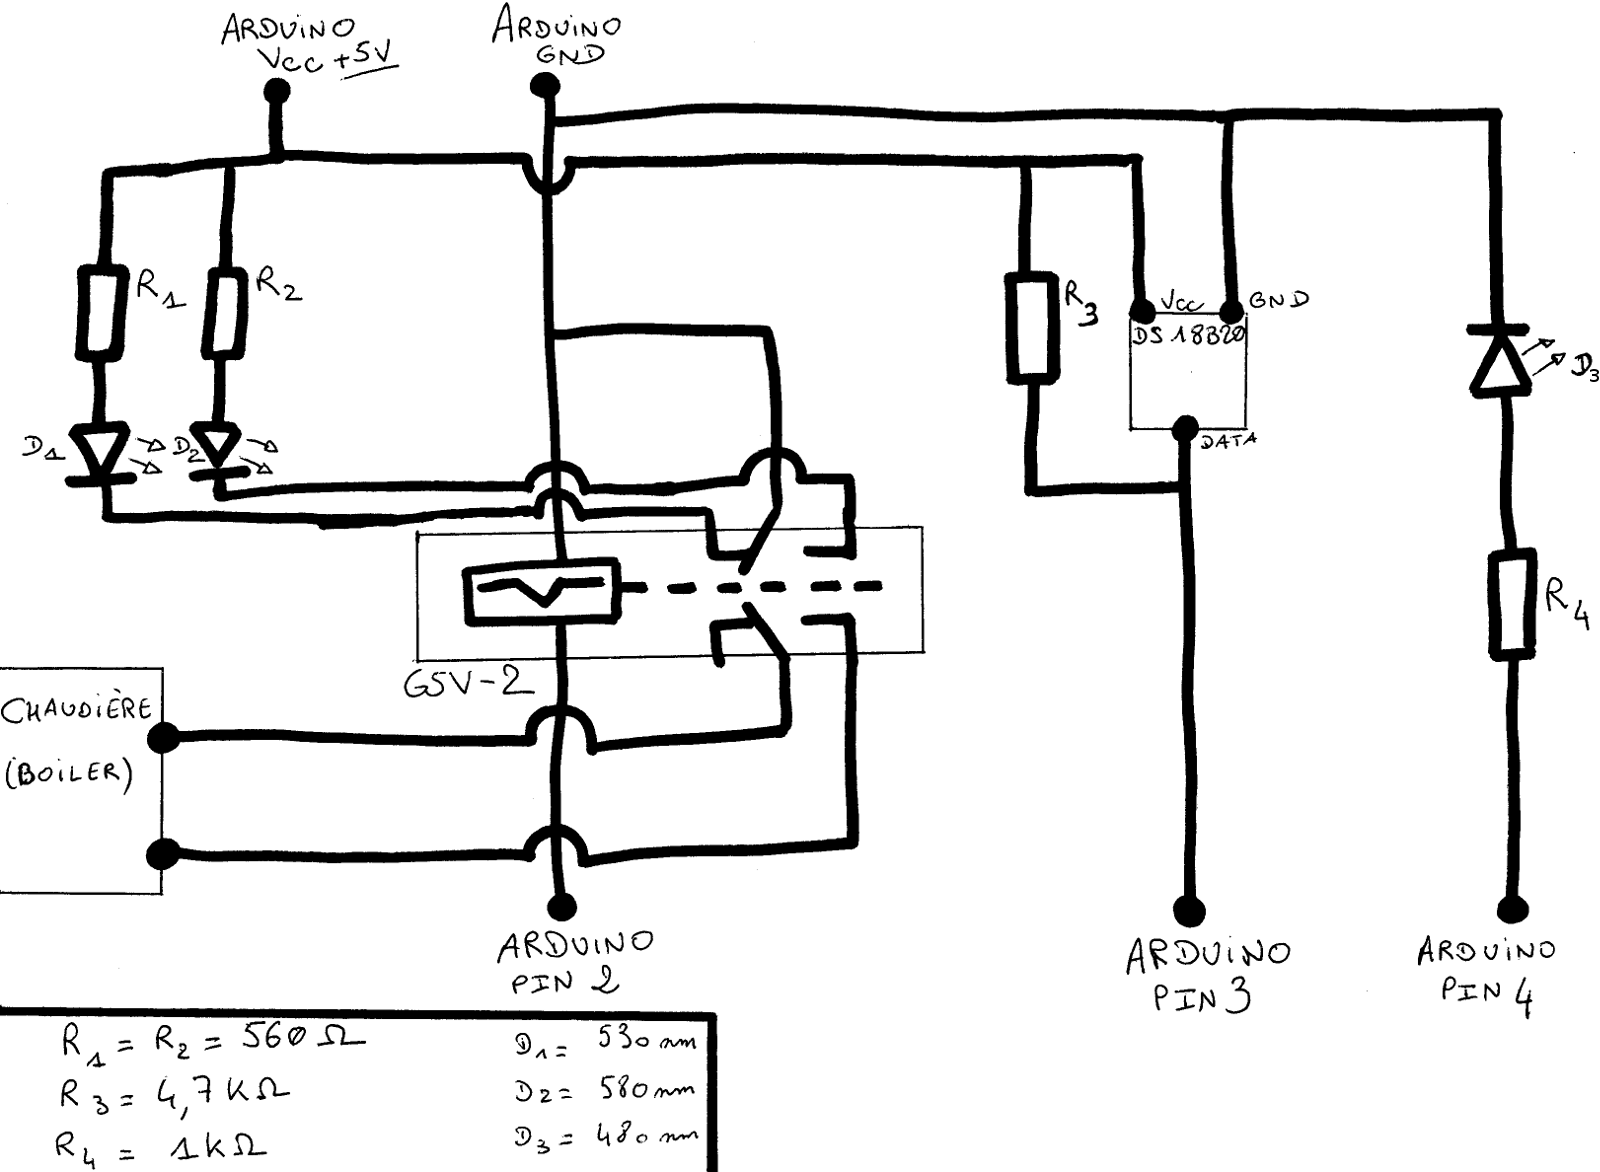 ARDUiNO
Vcc +5V
ARDUiNO
GND
R1
R2
R3
Vcc
GND
DS 18B20
D3
D1
D2
DATA
R4
G5V-2
CHAUDiÈRE
(BOiLER)
ARDUINO
PIN 2
ARDUiNO
PIN 3
ARDUiNO
PIN 4
R1 = R2 = 560 Ω
R3 = 4,7 KΩ
R4 = 1KΩ
D1 = 530 nm
D2 = 580 nm
D3 = 480 nm